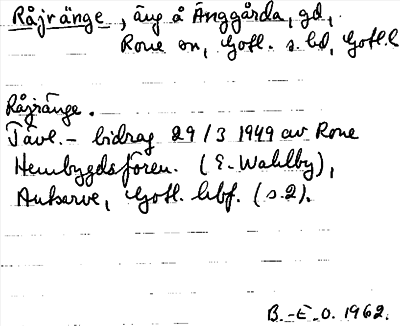 Råjränge, äng å Änggårda, gd,
Rone sn, Gotl. s. hd, Gotl. l
Råjränge.
Tävl.- bidrag 29/3 1949 av Rone
Hembygdsfören. (E. Wahlby),
Autserve, Gotl. hbf. (s.2).
B.-E.O. 1962.